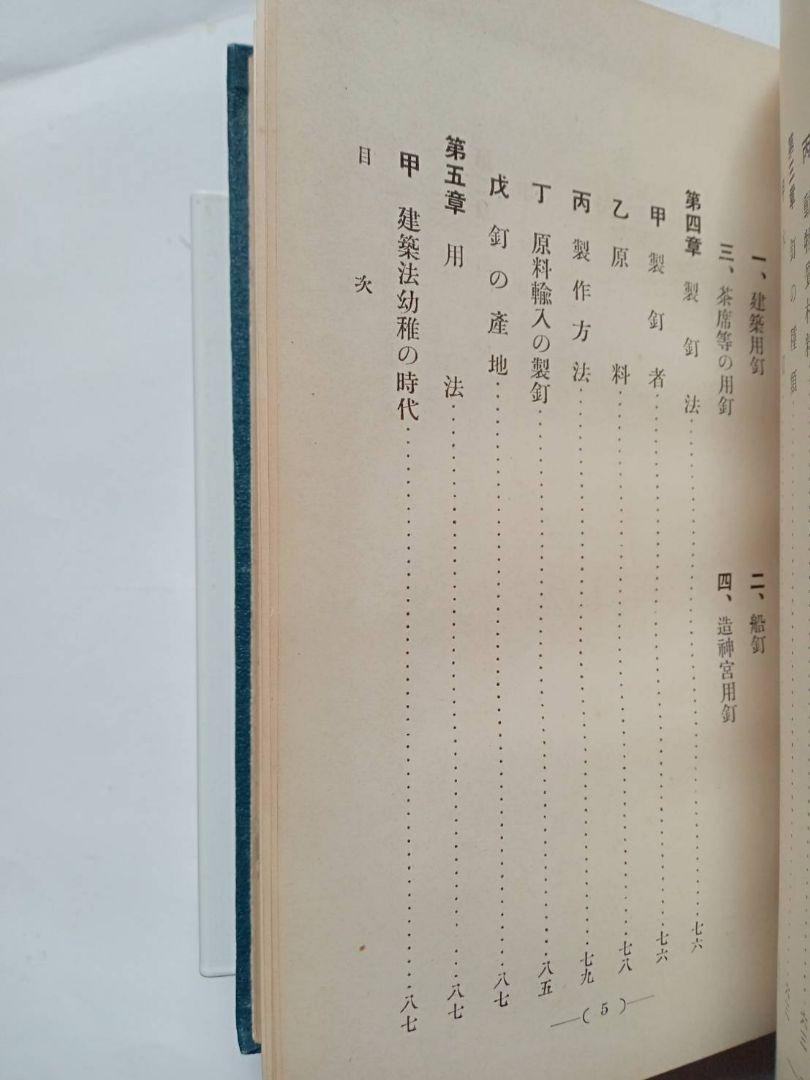 一、建築用釘　二、船釘
三、茶席等の用釘　四、造神宮用釘
第四章　製釘法……七六
甲　製釘者……七六
乙　原料……七八
丙　製作方法……七九
丁　原料輸入の製釘……八五
戊　釘の產地……八七
第五章　用法……八七
甲　建築法幼稚の時代……八七
目次
(5)